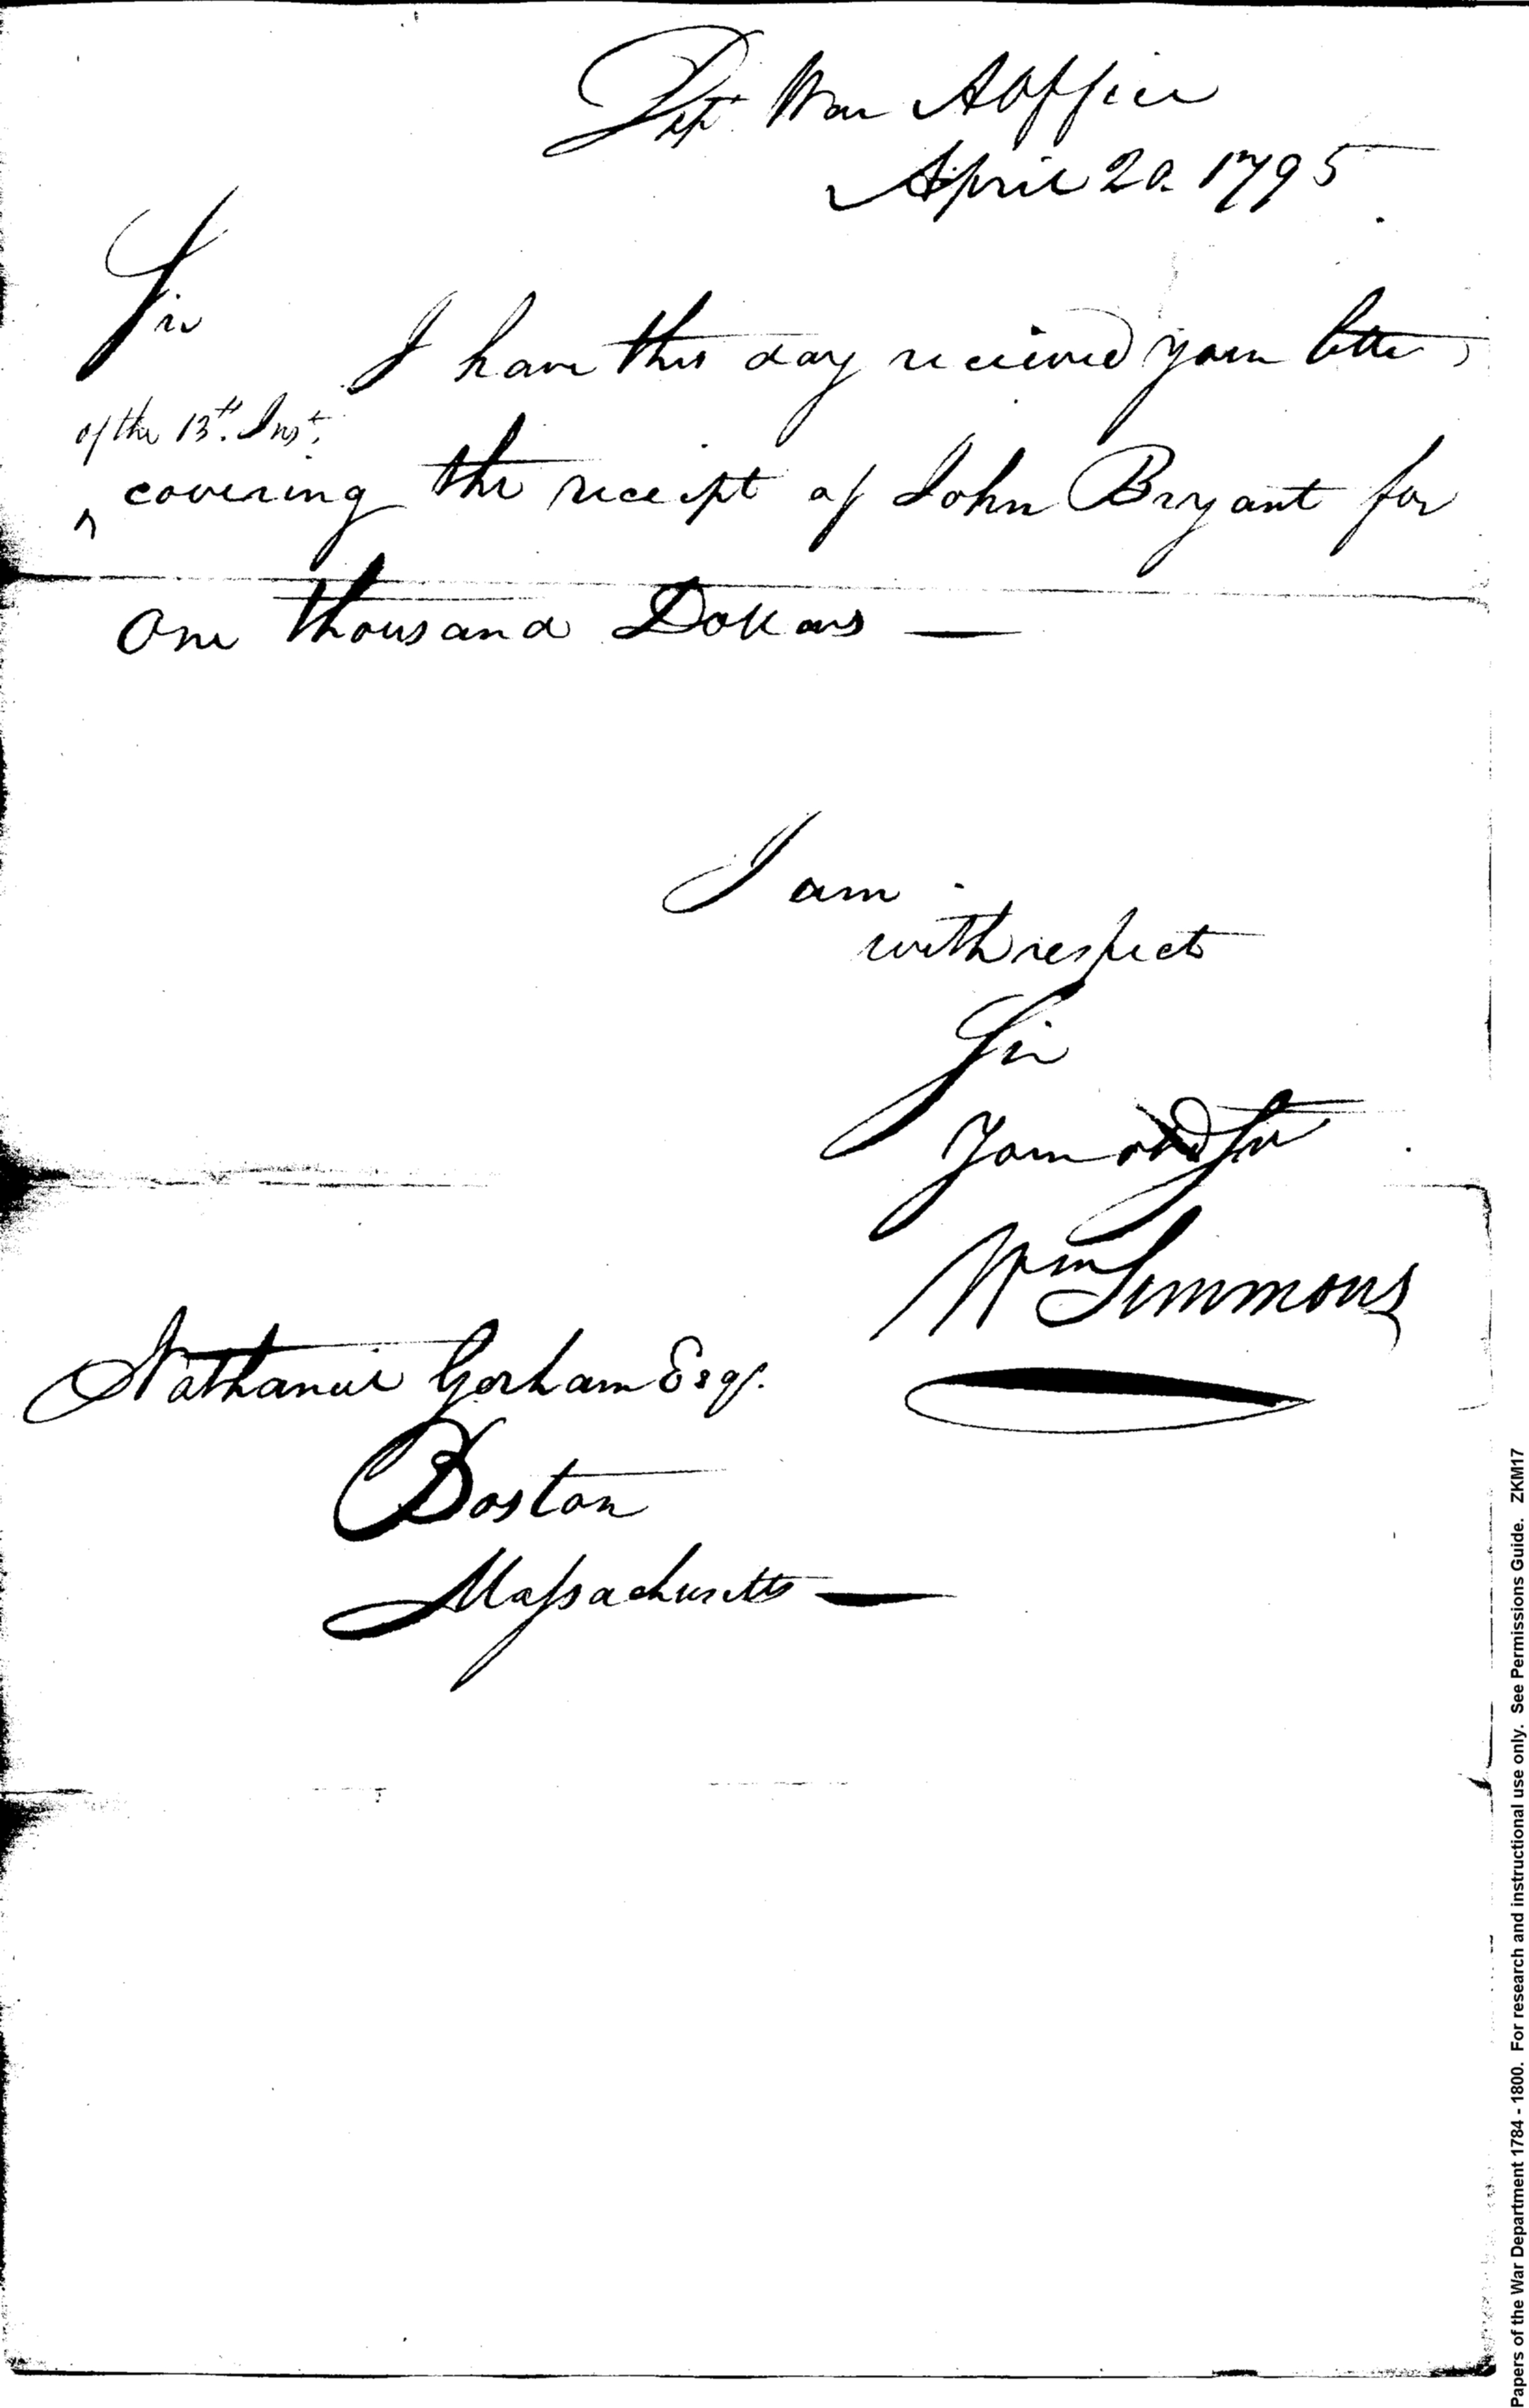 Dept War AOffice
April 20. 1795
Sir
I have this day received your letter
of the 13th. Inst.
^ covering the receipt of John Bryant for
One thousand Dollars —
I am
with respect
Sir
Your obd Sr
Wm Simmons
Nathaniel Gorham Esqr.
Boston
Massachusetts —
Papers of the War Department 1784 - 1800. For research and instructional use only. See Permissions Guide. ZKM17